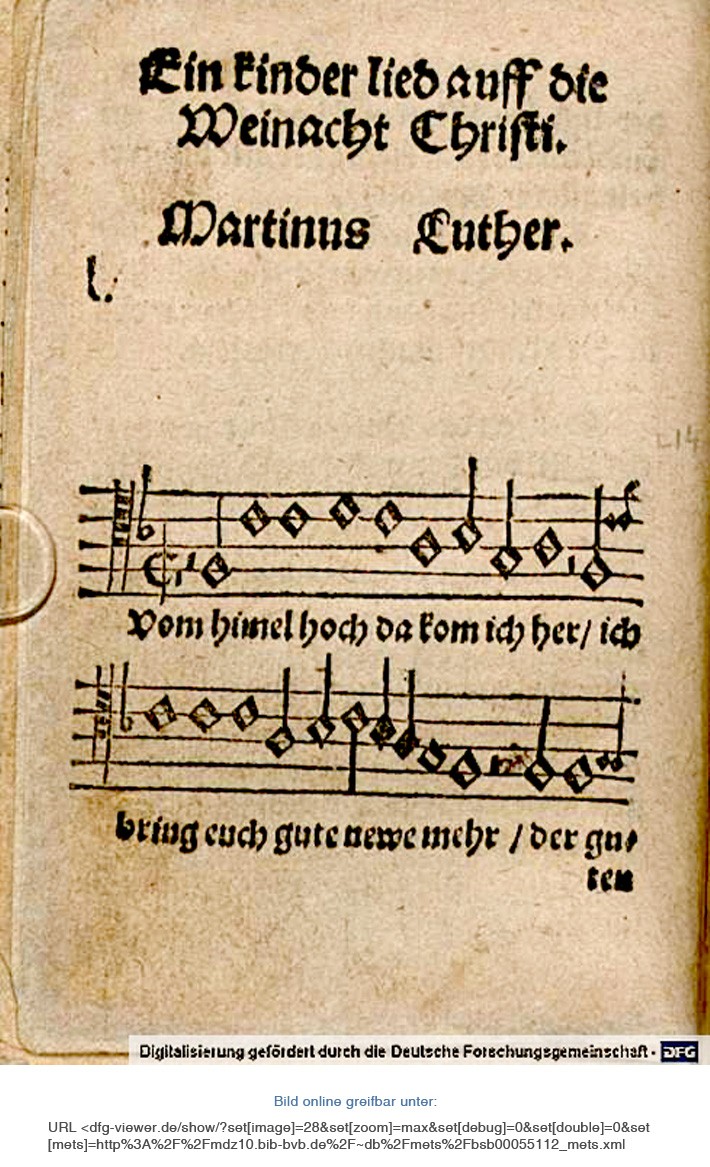 Ein kinder lied auff die
Weinacht Christi.
Martinus Luther.
l.
Vom himel hoch da kom ich her/ ich
bring euch gute newe mehr / der gu⸗
ten
Digitalisierung gefördert durch die Deutsche Forschungsgemeinschaft - DFG
Bild online greifbar unter:
URL <dfg-viewer.de/show/?set[image]=28&set[zoom]=max&set[debug]=0&set[double]=0&set
[mets]=http%3A%2F%2Fmdz10.bib-bvb.de%2F~db%2Fmets%2Fbsb00055112_mets.xml